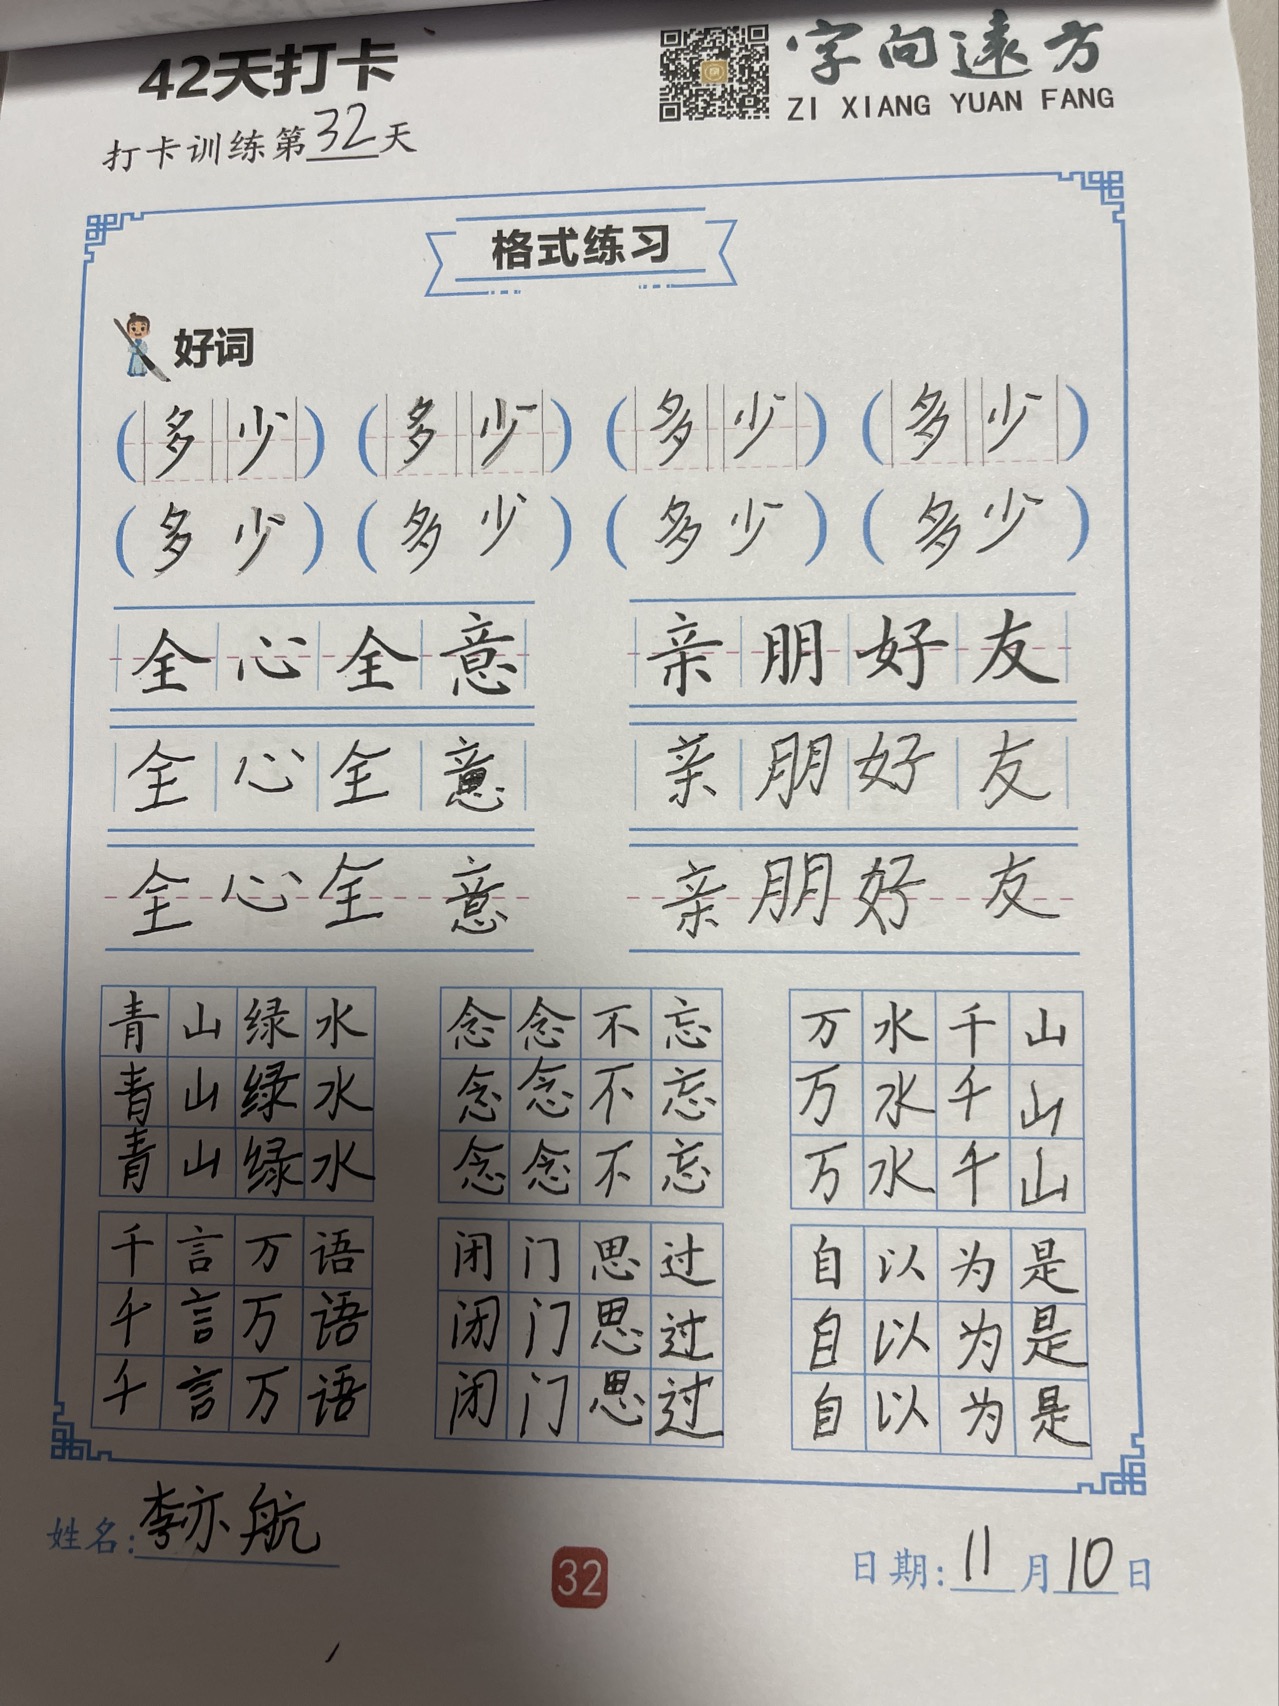 42天打卡
字向远方
ZI XIANG YUAN FANG
打卡训练第32天
格式练习
好词
(多少) (多少) (多少) (多少)
(多少) (多少) (多少) (多少)
全心全意 亲朋好友
全心全意 亲朋好友
全心全意 亲朋好友
青山绿水 念念不忘 万水千山
青山绿水 念念不忘 万水千山
青山绿水 念念不忘 万水千山
千言万语 闭门思过 自以为是
千言万语 闭门思过 自以为是
千言万语 闭门思过 自以为是
姓名:李亦航
32
日期:11月10日